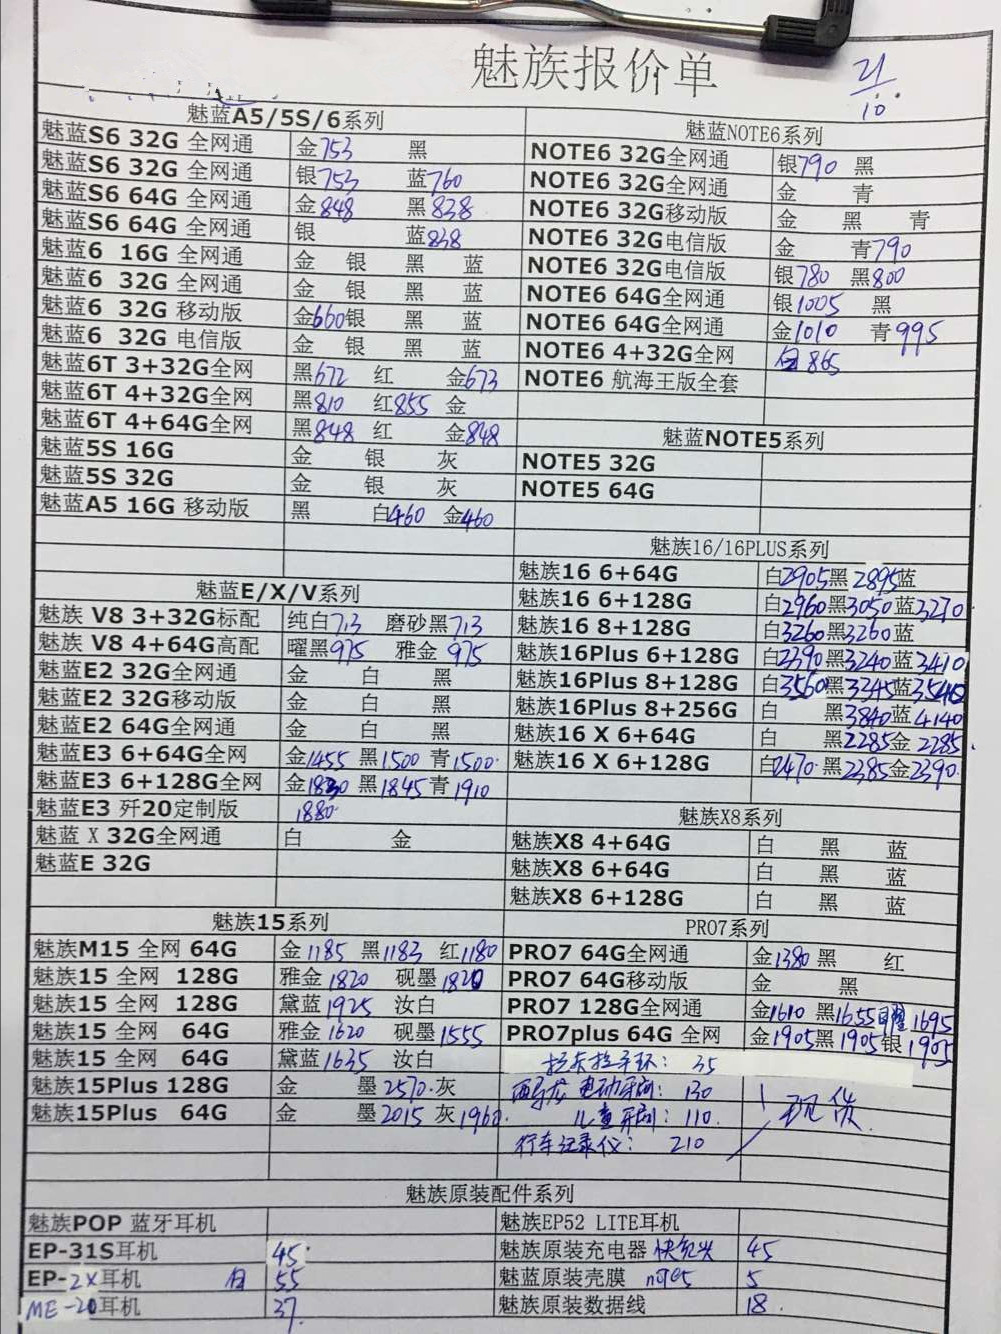 魅族报价单
21/10
魅蓝A5/5S/6系列
魅蓝S6 32G 全网通 金753 黑
魅蓝S6 32G 全网通 银753 蓝760
魅蓝S6 64G 全网通 金848 黑838
魅蓝S6 64G 全网通 银 蓝838
魅蓝6 16G 全网通 金 银 黑 蓝
魅蓝6 32G 全网通 金 银 黑 蓝
魅蓝6 32G 移动版 金660银 黑 蓝
魅蓝6 32G 电信版 金 银 黑 蓝
魅蓝6T 3+32G全网 黑672 红 金673
魅蓝6T 4+32G全网 黑810 红855 金
魅蓝6T 4+64G全网 黑848 红 金848
魅蓝5S 16G 金 银 灰
魅蓝5S 32G 金 银 灰
魅蓝A5 16G 移动版 黑 白460 金460
魅蓝E/X/V系列
魅族 V8 3+32G标配 纯白713 磨砂黑713
魅族 V8 4+64G高配 曜黑975 雅金 975
魅蓝E2 32G全网通 金 白 黑
魅蓝E2 32G移动版 金 白 黑
魅蓝E2 64G全网通 金 白 黑
魅蓝E3 6+64G全网 金1455 黑1500 青1500
魅蓝E3 6+128G全网 金1830 黑1845 青1910
魅蓝E3 歼20定制版 1880
魅蓝 X 32G全网通 白 金
魅蓝E 32G
魅族15系列
魅族M15 全网 64G 金1185 黑1183 红1180
魅族15 全网 128G 雅金1820 砚墨1820
魅族15 全网 128G 黛蓝1925 汝白
魅族15 全网 64G 雅金1620 砚墨1555
魅族15 全网 64G 黛蓝1635 汝白
魅族15Plus 128G 金 墨2570 灰
魅族15Plus 64G 金 墨2015 灰1960
魅蓝NOTE6系列
NOTE6 32G全网通 银790 黑
NOTE6 32G全网通 金 青
NOTE6 32G移动版 金 黑 青
NOTE6 32G电信版 金 青790
NOTE6 32G电信版 银780 黑800
NOTE6 64G全网通 银1005 黑
NOTE6 64G全网通 金1010 青995
NOTE6 4+32G全网 865
NOTE6 航海王版全套
魅蓝NOTE5系列
NOTE5 32G
NOTE5 64G
魅族16/16PLUS系列
魅族16 6+64G 白2905黑2895蓝
魅族16 6+128G 白2960黑3050蓝3270
魅族16 8+128G 白3260黑3260蓝
魅族16Plus 6+128G 白2390黑3240蓝3410
魅族16Plus 8+128G 白3560黑3245蓝3540
魅族16Plus 8+256G 白 黑3840蓝4140
魅族16 X 6+64G 白 黑2285金2285
魅族16 X 6+128G 白2470黑2385金2390
魅族X8系列
魅族X8 4+64G 白 黑 蓝
魅族X8 6+64G 白 黑 蓝
魅族X8 6+128G 白 黑 蓝
PRO7系列
PRO7 64G全网通 金1380 黑 红
PRO7 64G移动版 金 黑
PRO7 128G全网通 金1610 黑1655 1695
PRO7plus 64G 全网 金1905黑1905银1905
拉夫拉手环：35
西马龙 电动牙刷：130
儿童牙刷：110
行车记录仪：210
现货
魅族原装配件系列
魅族POP 蓝牙耳机 魅族EP52 LITE耳机
EP-31S耳机 45 魅族原装充电器 45
EP-2X耳机 白 55 魅蓝原装壳膜 note5 5
ME-20耳机 37 魅族原装数据线 18